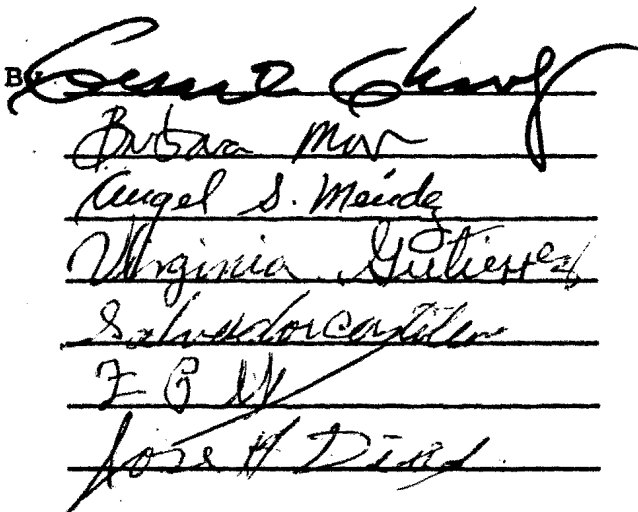 By Cesar Chavez
Barbara Mar
Angel S. Mendez
Virginia Gutierrez
Salvador Castillo
Jose H Diaz